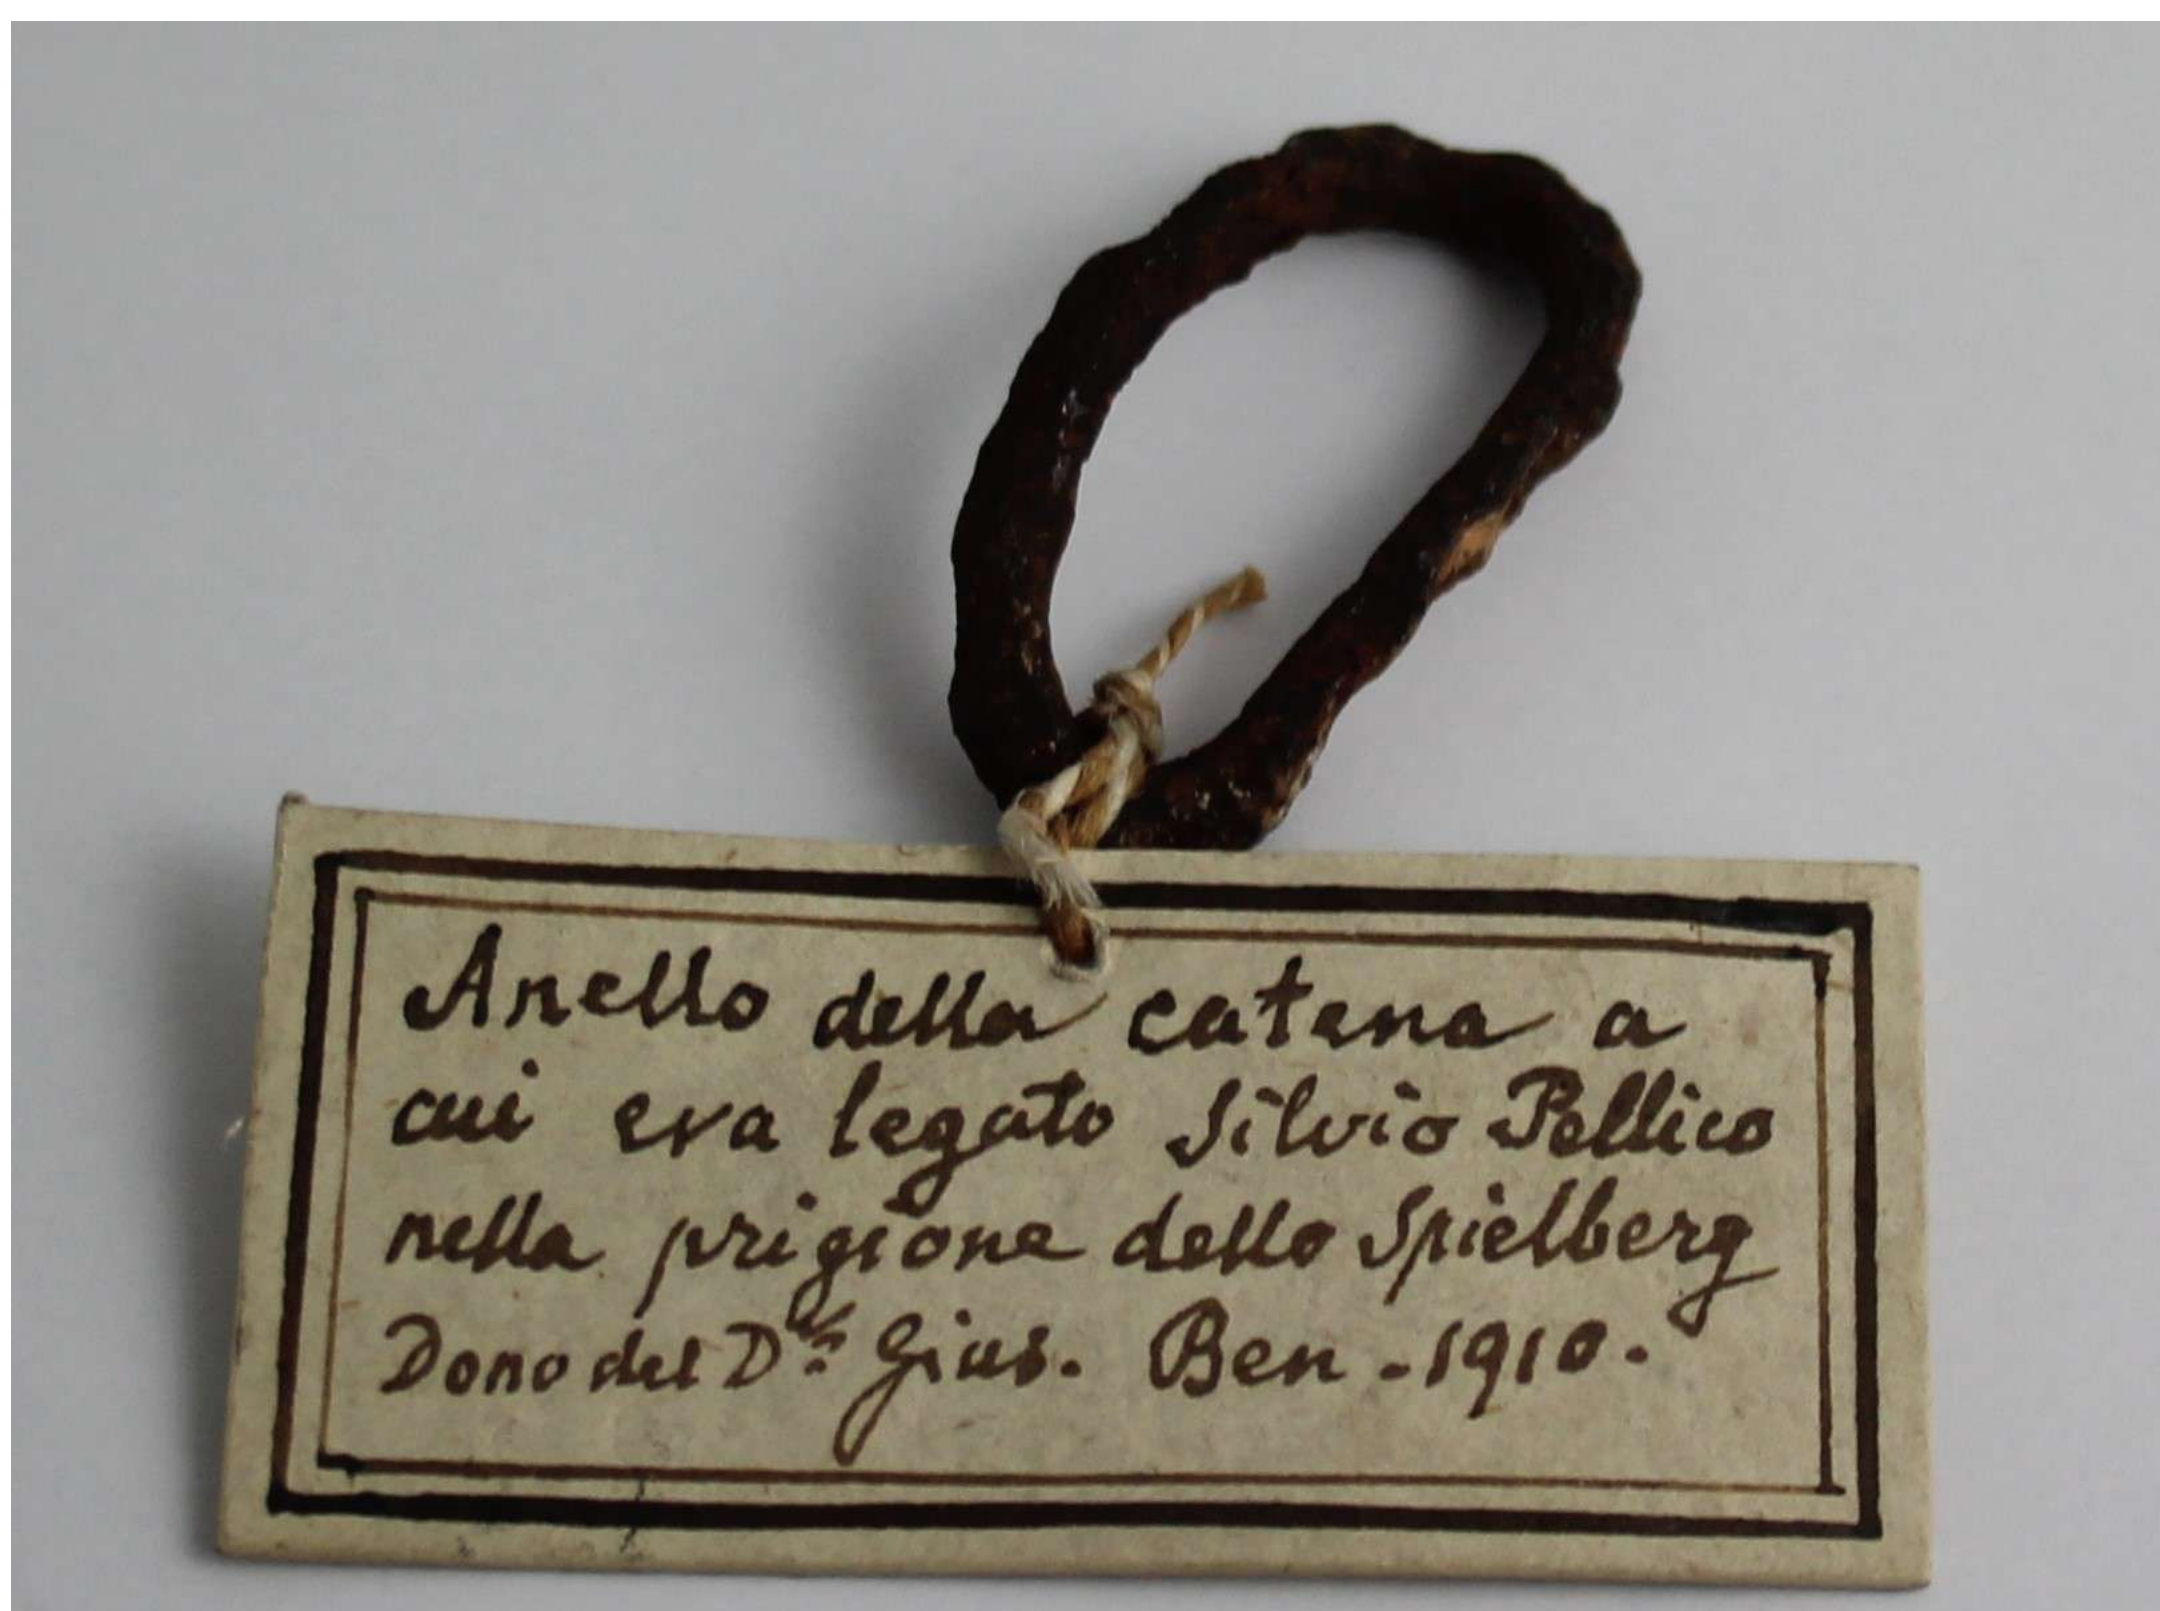 Anello della catena a
cui era legato Silvio Pellico
nella prigione dello Spielberg
Dono del D.r Gius. Ben - 1910.